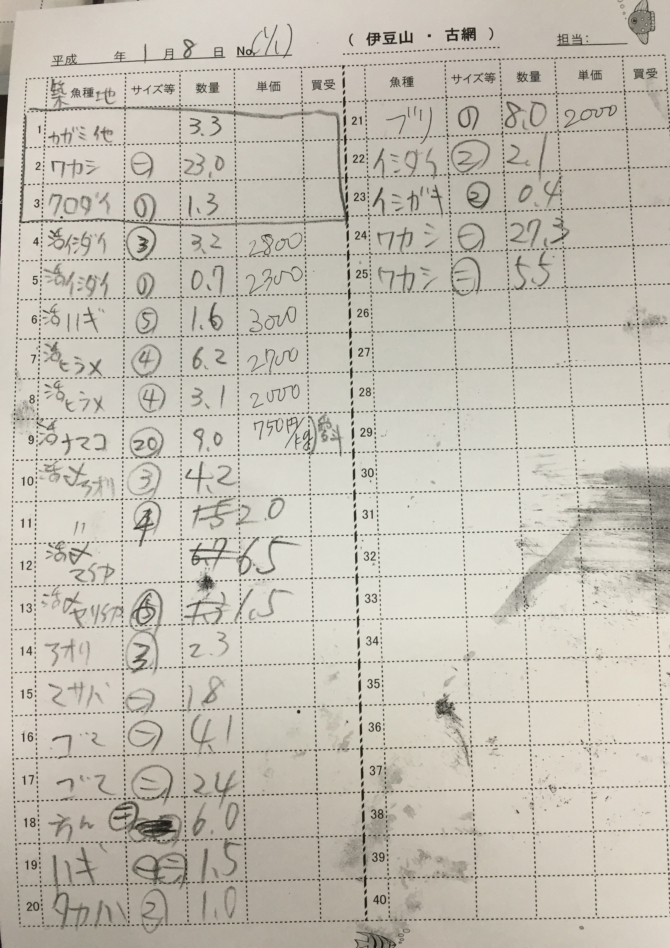 平成 年 1 月 8 日 No. (1/1) ( 伊豆山 ・ 古網 ) 担当:
築地
魚種 サイズ等 数量 単価 買受
1 カガミ他 3.3
2 ワカシ ㊁ 23.0
3 クロダイ ① 1.3
4 活イシダイ ③ 3.2 2800
5 活イシダイ ① 0.7 2300
6 活ハギ ⑤ 1.6 3000
7 活ヒラメ ④ 6.2 2700
8 活ヒラメ ④ 3.1 2000
9 活ナマコ ⑳ 9.0 750円/kg
10 活〆アオリ ③ 4.2
11 〃 ④ 2.0
12 活〆マイカ 6.7 6.5
13 活〆ヤリイカ 1.5
14 アオリ ③ 2.3
15 マサバ ㊀ 1.8
16 ゴマ ㊀ 4.1
17 ゴマ ㊁ 2.4
18 ㊁ 6.0
19 ハギ ㊁ 1.5
20 タカハ ② 1.0
魚種 サイズ等 数量 単価 買受
21 ブリ ① 8.0 2000
22 イシダイ ② 2.1
23 イシガキ ② 0.4
24 ワカシ ㊀ 27.3
25 ワカシ ㊁ 5.5
26
27
28
29
30
31
32
33
34
35
36
37
38
39
40